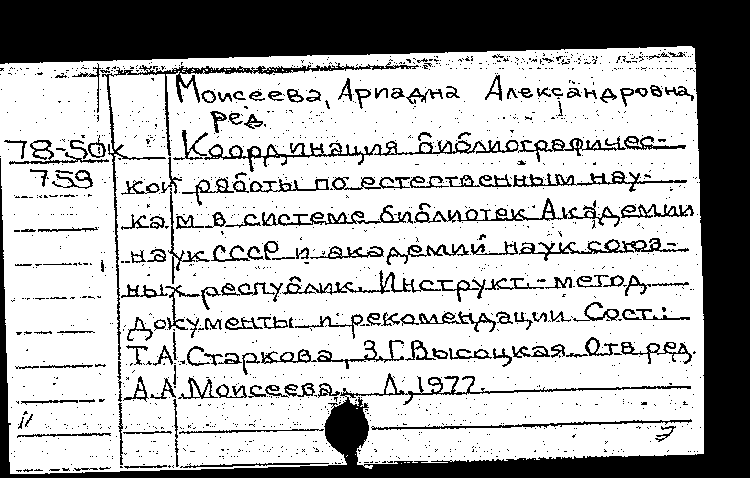 Моисеева, Ариадна Александровна,
ред.
78-50к Координация библиографичес-
759 кой работы по естественным нау-
кам в системе библиотек Академии
наук СССР и академий наук союз-
ных республик. Инструкт.-метод.
документы и рекомендации. Сост.:
Т.А.Старкова, З.Г.Высоцкая. Отв.ред.
А.А.Моисеева. Л., 1977.